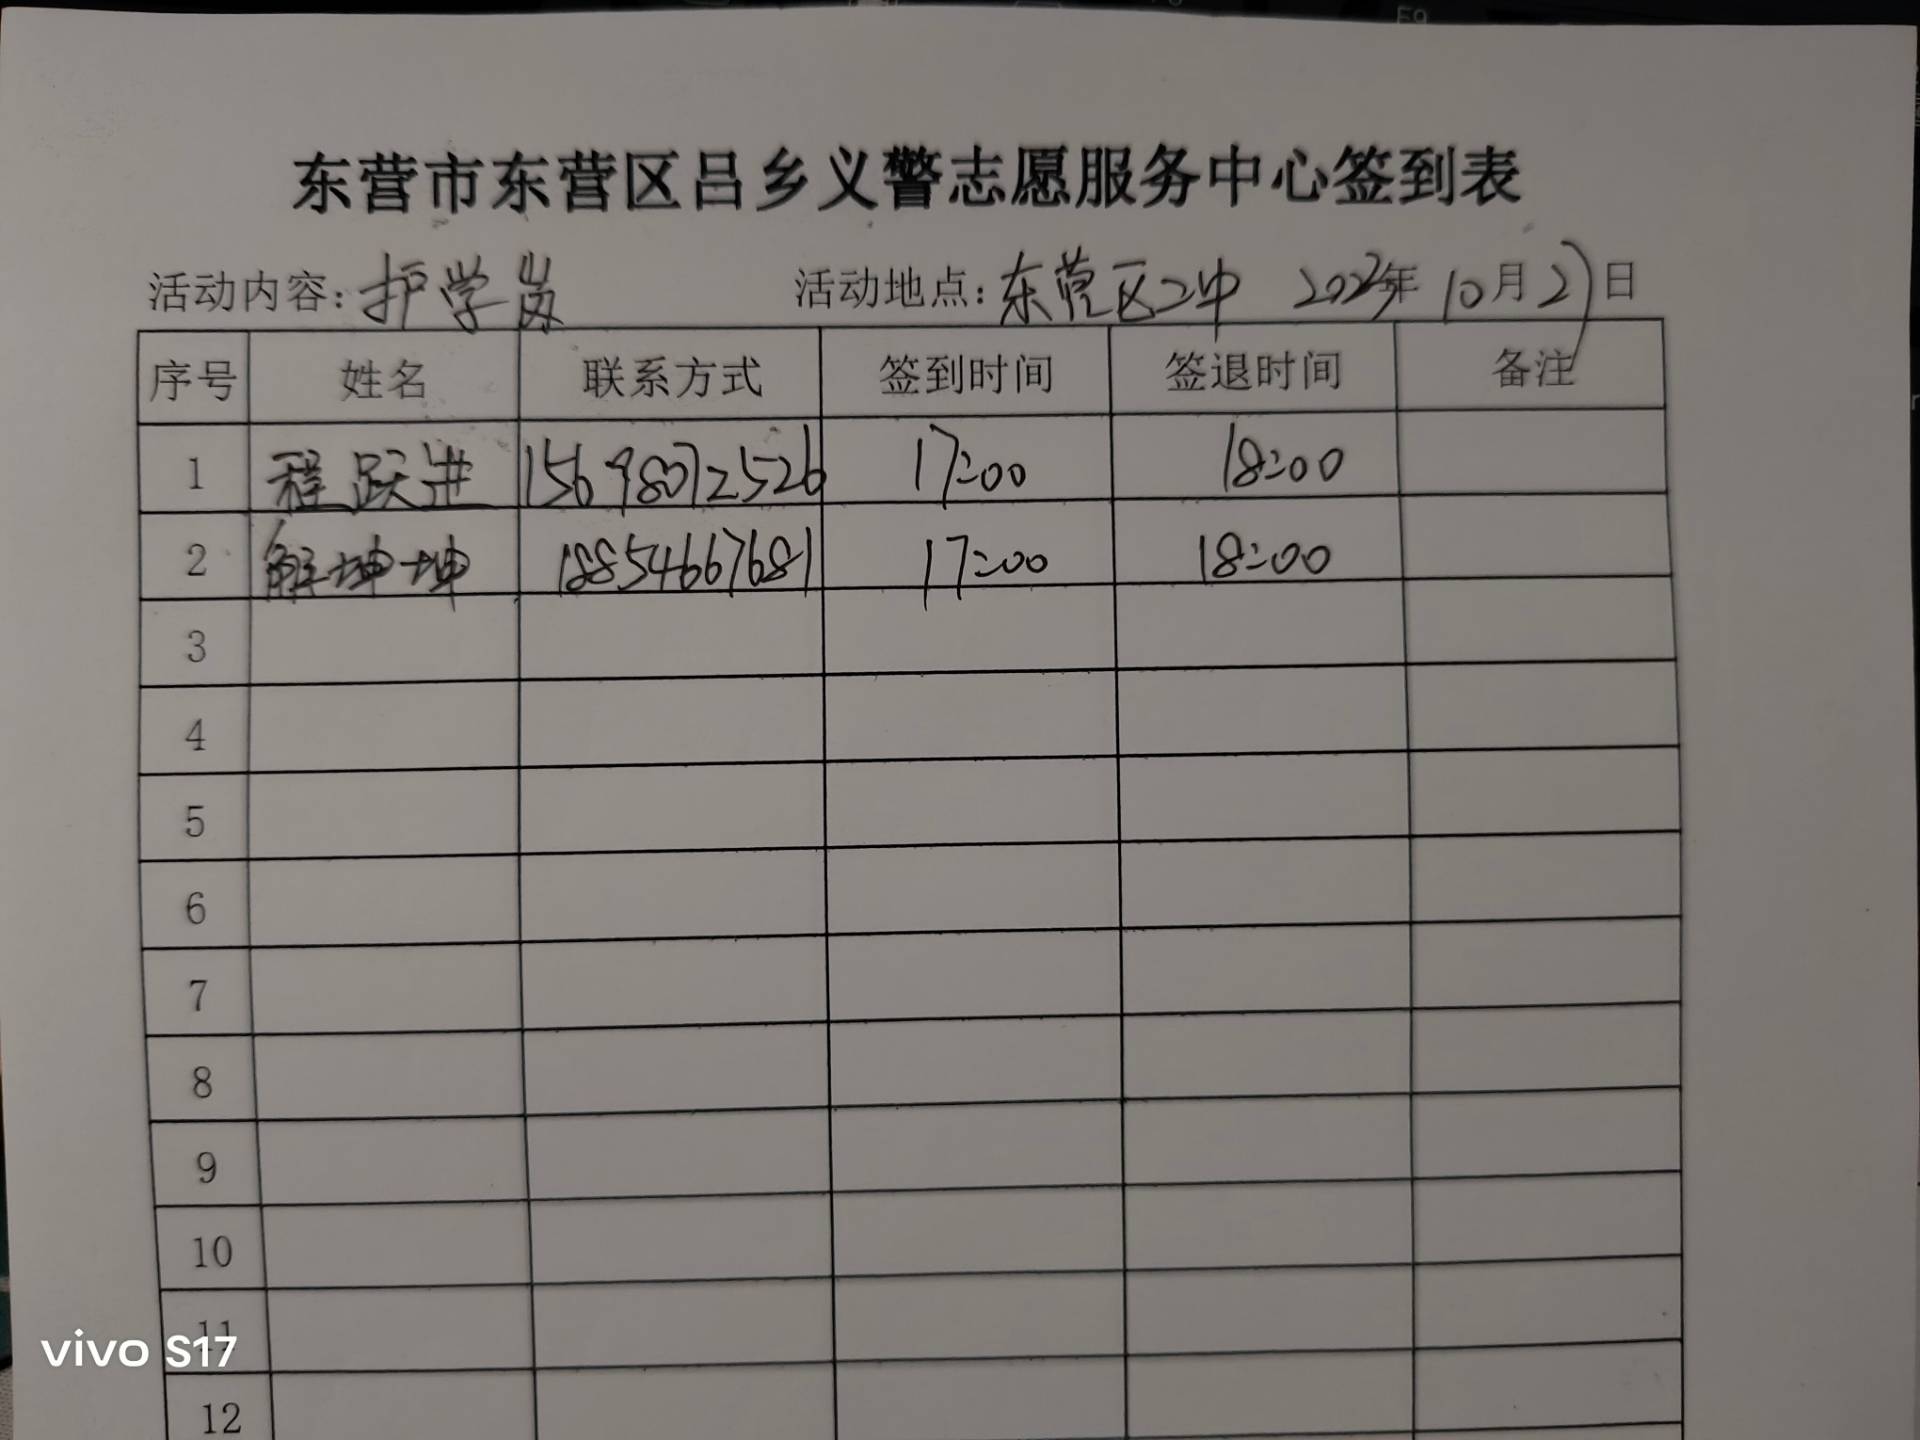 F9
东营市东营区吕乡义警志愿服务中心签到表
活动内容：护学岗 活动地点：东营区二中 2023年 10月27日
序号 姓名 联系方式 签到时间 签退时间 备注
1 程跃进 15698072526 17:00 18:00
2 解坤坤 18854667681 17:00 18:00
3
4
5
6
7
8
9
10
11
12
vivo S17